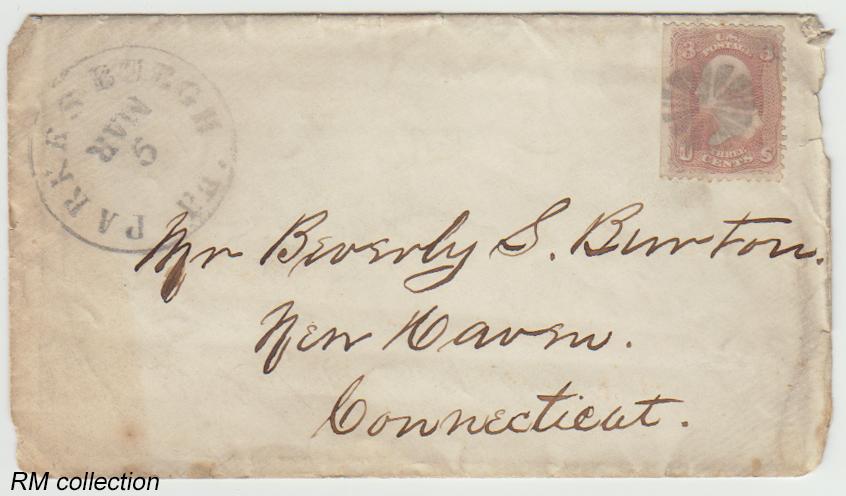 PARKERSBURGH. VA
MAR
9
U.S.
POSTAGE
3 3
THREE
U CENTS S
Mr Beverly S. Burton.
New Haven.
Connecticut.
RM collection